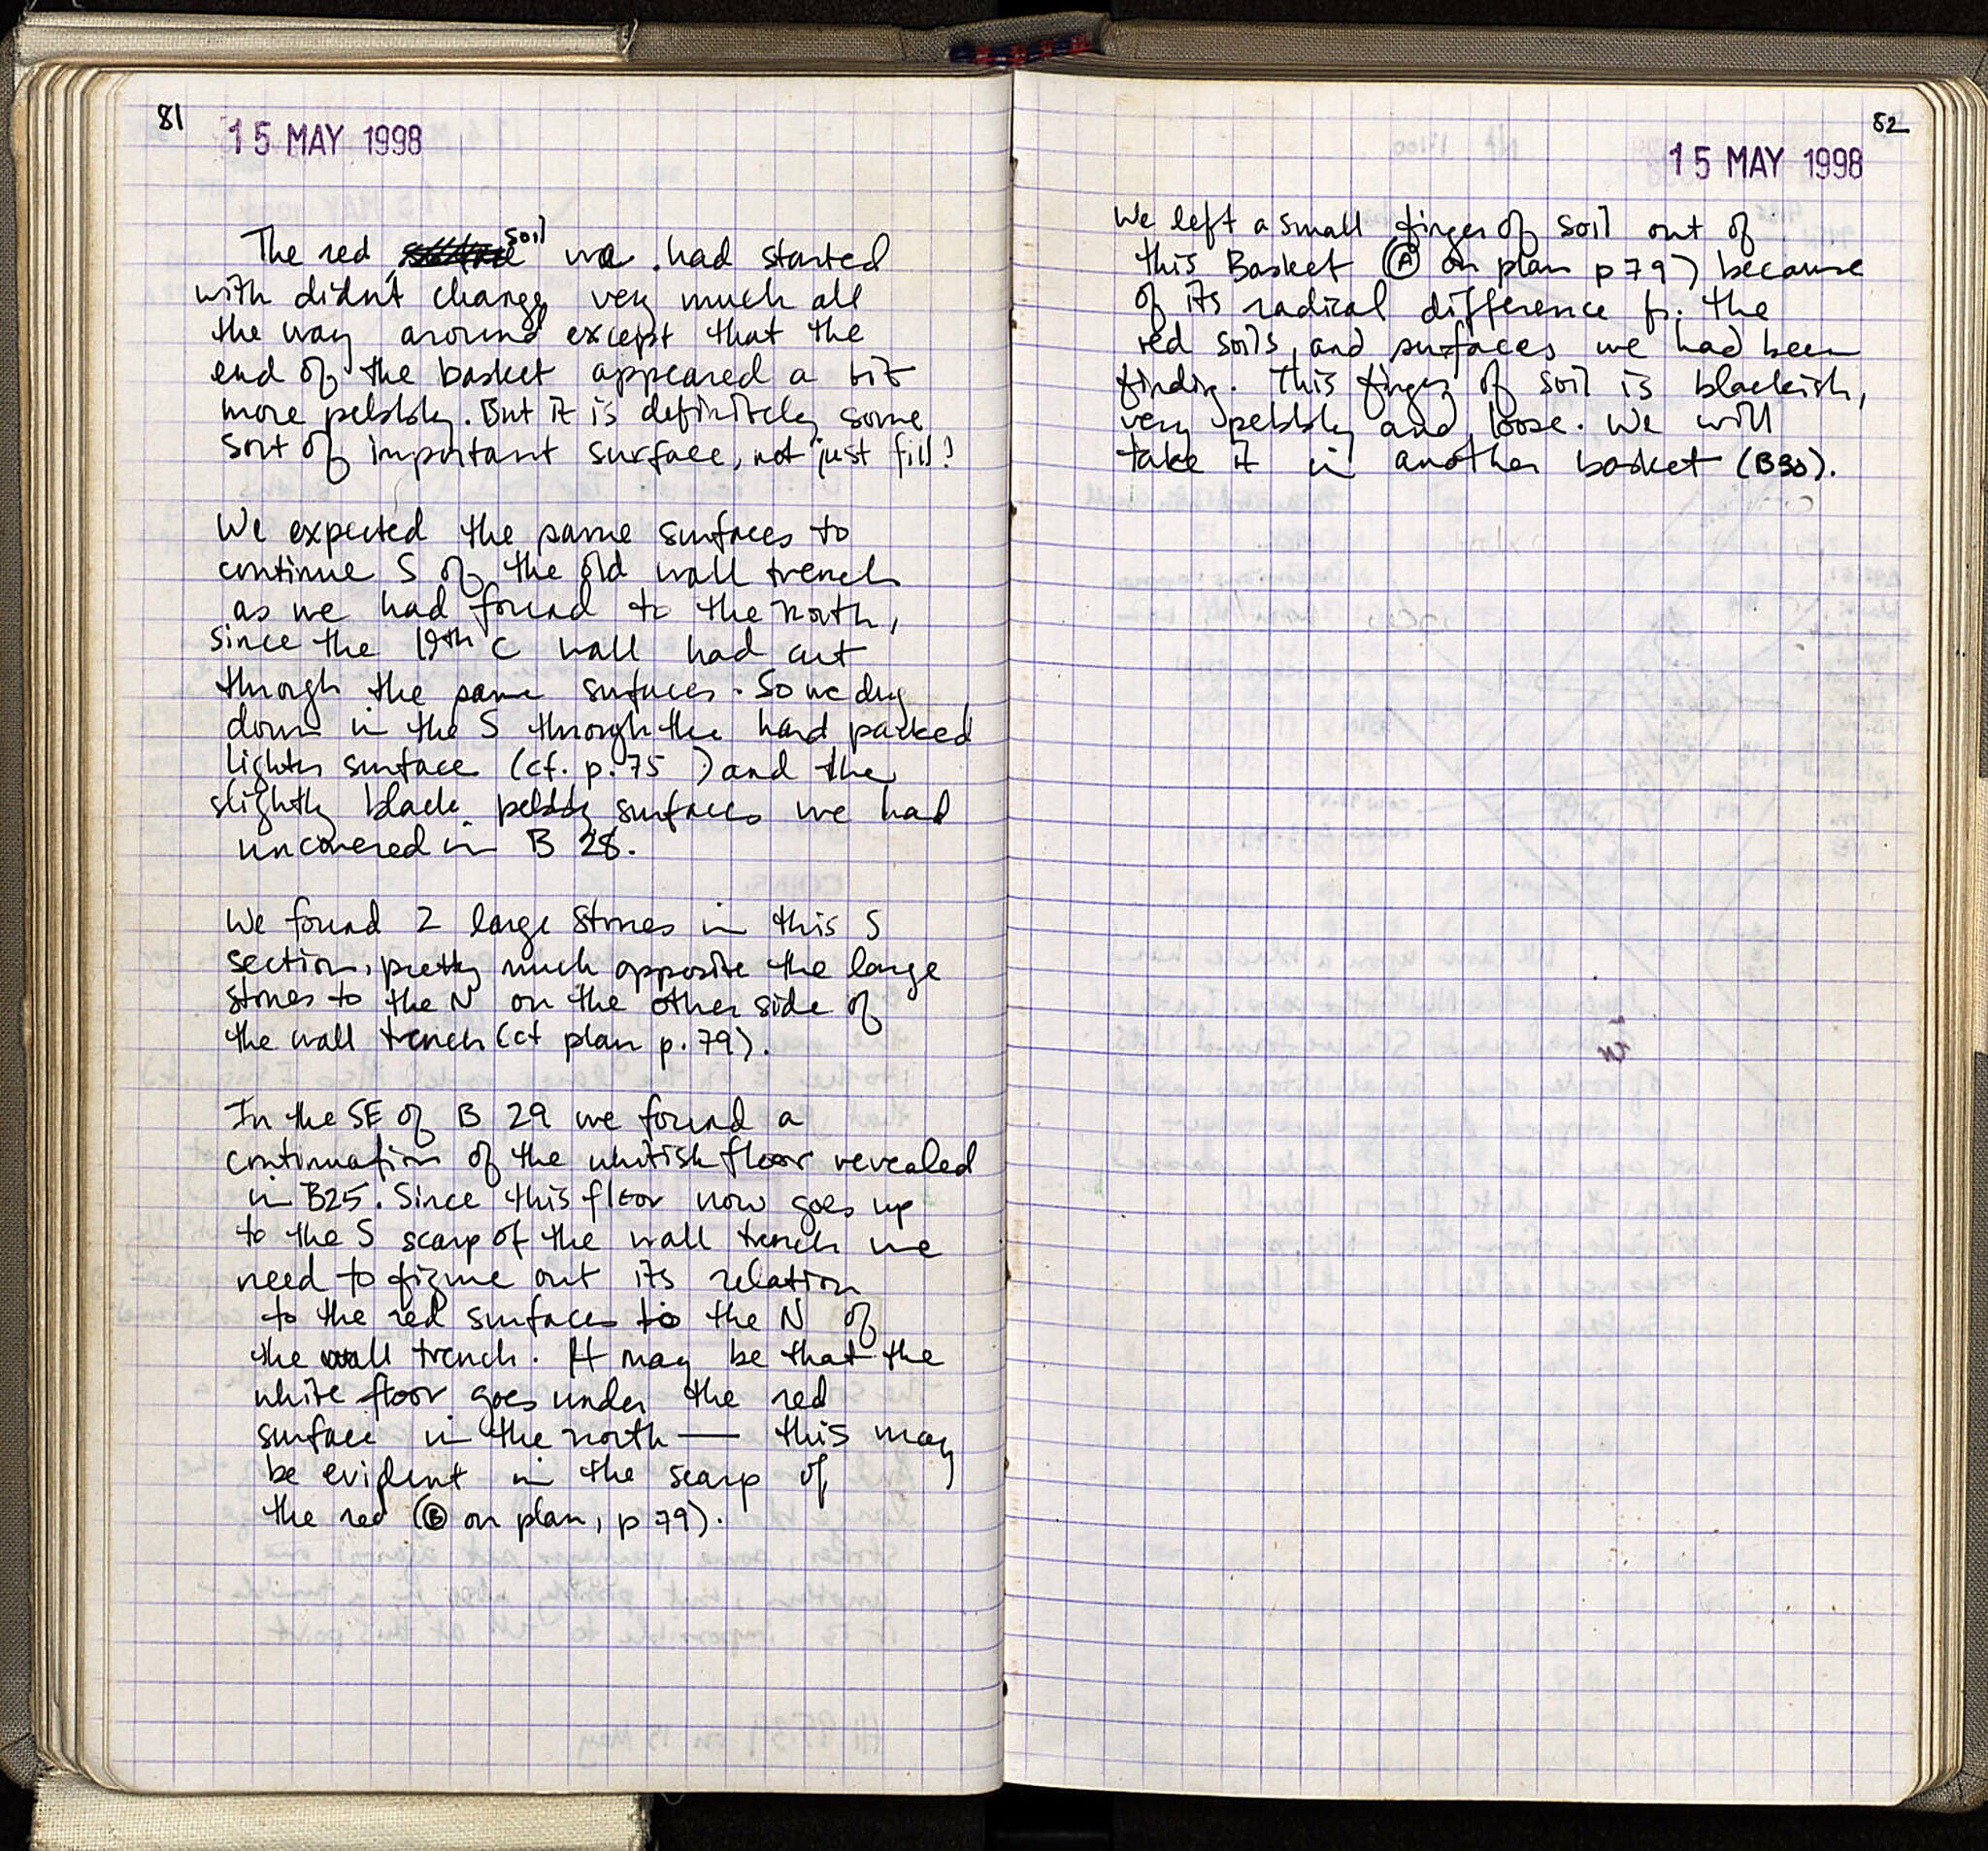 81
15 MAY 1998
The red soil we had started
with didn't change very much all
the way around except that the
end of the basket appeared a bit
more pebbly. But it is definitely some
sort of important surface, not just fill!
We expected the same surfaces to
continue S of the old wall trench
as we had found to the north,
since the 19th C wall had cut
through the same surfaces. So we dug
down in the S through the hard packed
lighter surface (cf. p. 75) and the
slightly black pebbly surfaces we had
uncovered in B 28.
We found 2 large stones in this S
section, pretty much opposite the large
stones to the N on the other side of
the wall trench (cf plan p. 79).
In the SE of B 29 we found a
continuation of the whitish floor revealed
in B25. Since this floor now goes up
to the S scarp of the wall trench we
need to figure out its relation
to the red surfaces to the N of
the wall trench. It may be that the
white floor goes under the red
surface in the north — this may
be evident in the scarp of
the red (Ⓑ on plan, p 79).
82
15 MAY 1998
We left a small finger of soil out of
this Basket (Ⓐ on plan p 79) because
of its radical difference fr. the
red soils, and surfaces we had been
finding. This finger of soil is blackish,
very pebbly and loose. We will
take it in another basket (B30).